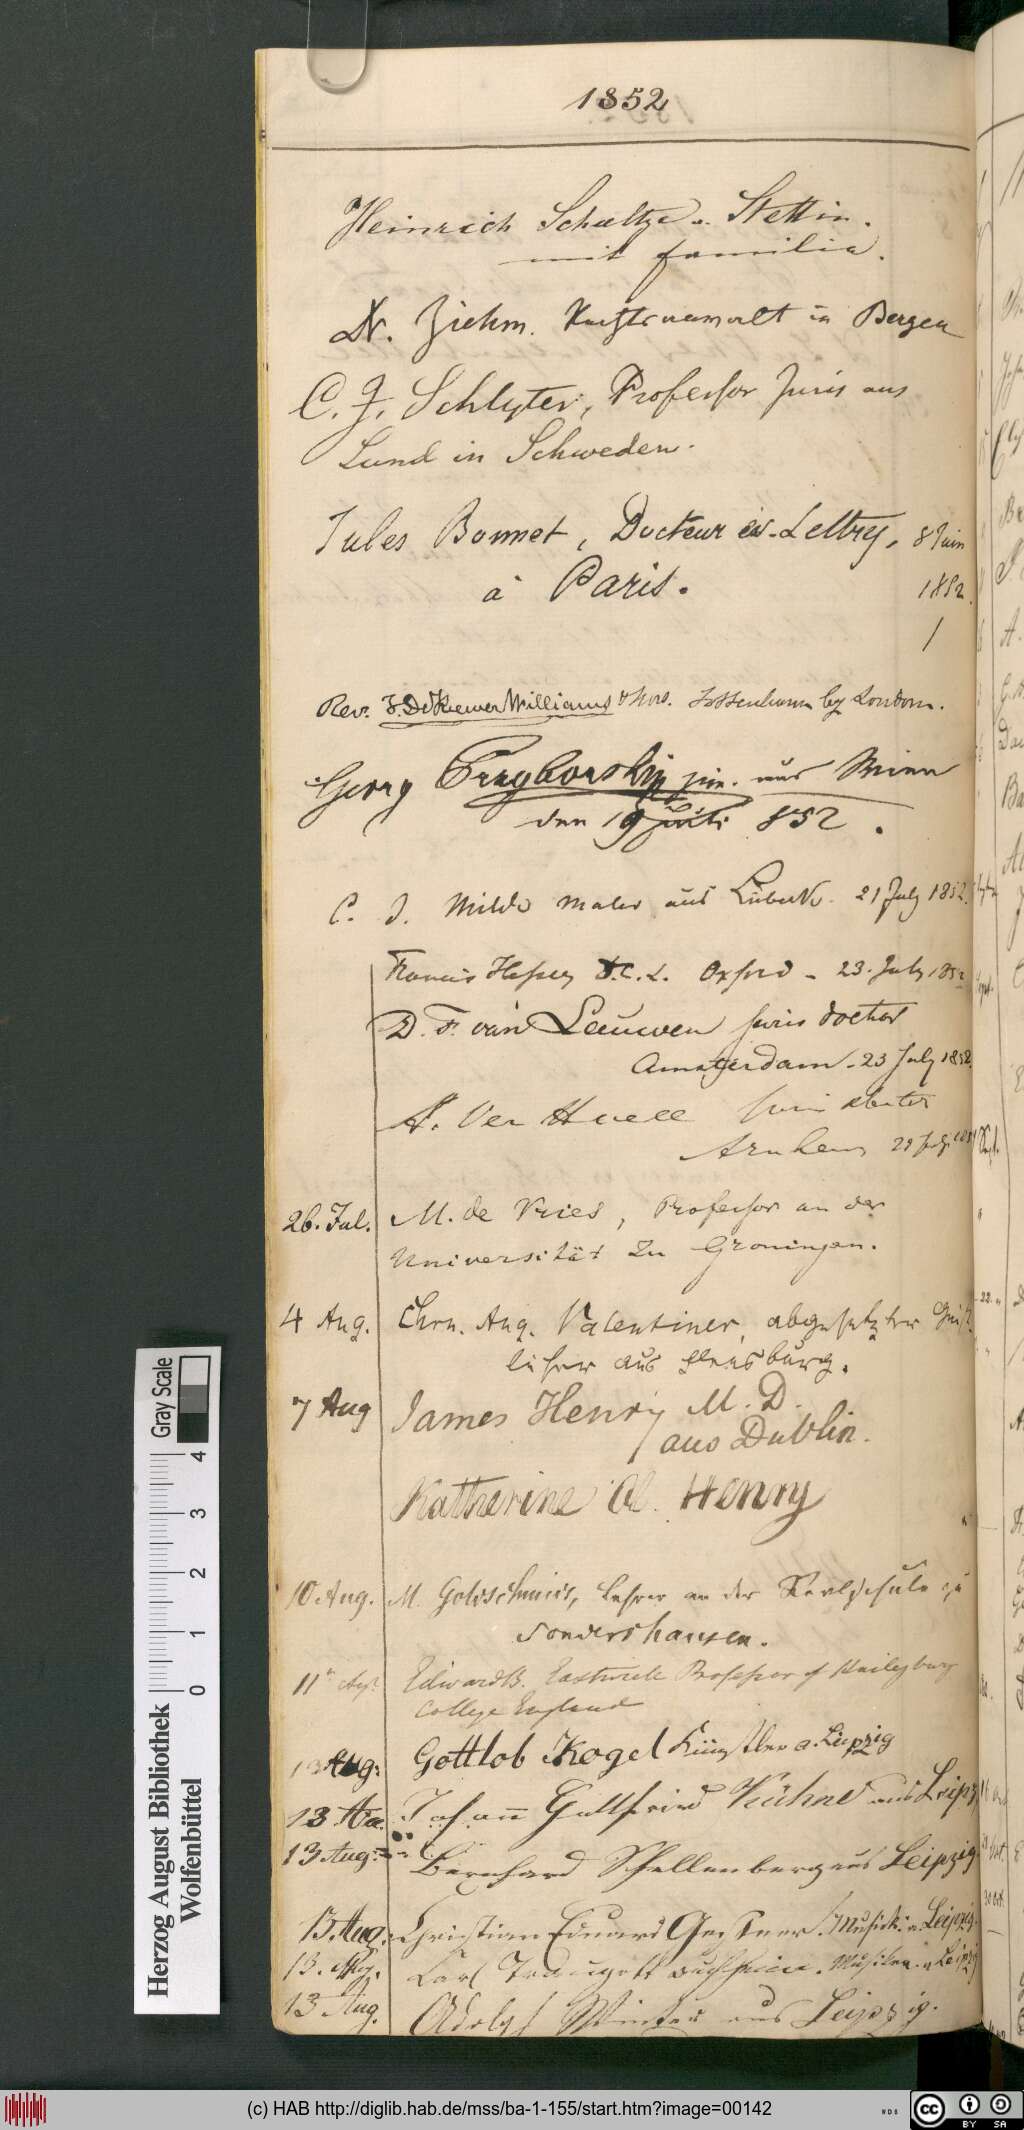 1852
Heinrich Schultze a. Stettin.
mit Familie.
Dr. Ziehm. Rechtsanwalt in Bergen
C. J. Schlyter, Professor Juris aus
Lund in Schweden.
Jules Bonnet, Docteur ès-Lettres, 8 Juin
à Paris. 1852.
Rev. Williams & Mrs. Tottenham by London.
Georg Przyborski jun. aus Wien
den 19 Juli 852.
C. J. Milde Maler aus Lübeck. 21 July 1852.
Francis D.C.L. Oxford - 23. July 1852
D. F. van Leeuwen juris doctor
Amsterdam - 23 July 1852.
A. Ver Huell juris doctor
Arnhem 23 July
26. Jul. M. de Vries, Professor an der
Universität zu Groningen.
4 Aug. Chrn. Aug. Valentiner, abgesetzter Geist-
licher aus Flensburg.
7 Aug James Henry M. D.
aus Dublin.
Katherine Henry
10 Aug. M. Goldschmidt, Lehrer an der Realschule zu
Sondershausen.
11 Edward B. Eastwick Professor of Haileybury
College England
13 Aug: Gottlob Kogel Künstler a. Leipzig
13 Johann Gottfried Kühne aus Leipz
13 Aug: Bernhard Schellenberg aus Leipzig
13. Aug. Christian Eduard Musick: a. Leipzig.
13. Aug. Carl Traugott Musiker a Leipzig
13 Aug. Adolf Winter aus Leipzig.
Herzog August Bibliothek
Wolfenbüttel
0 1 2 3 4
Gray Scale
(c) HAB http://diglib.hab.de/mss/ba-1-155/start.htm?image=00142
WDB
cc BY SA